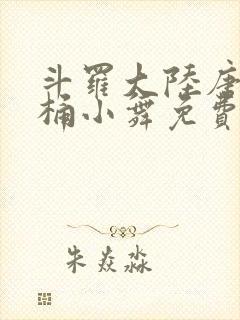 斗羅大陸唐
桶小舞免費
朱焱淼